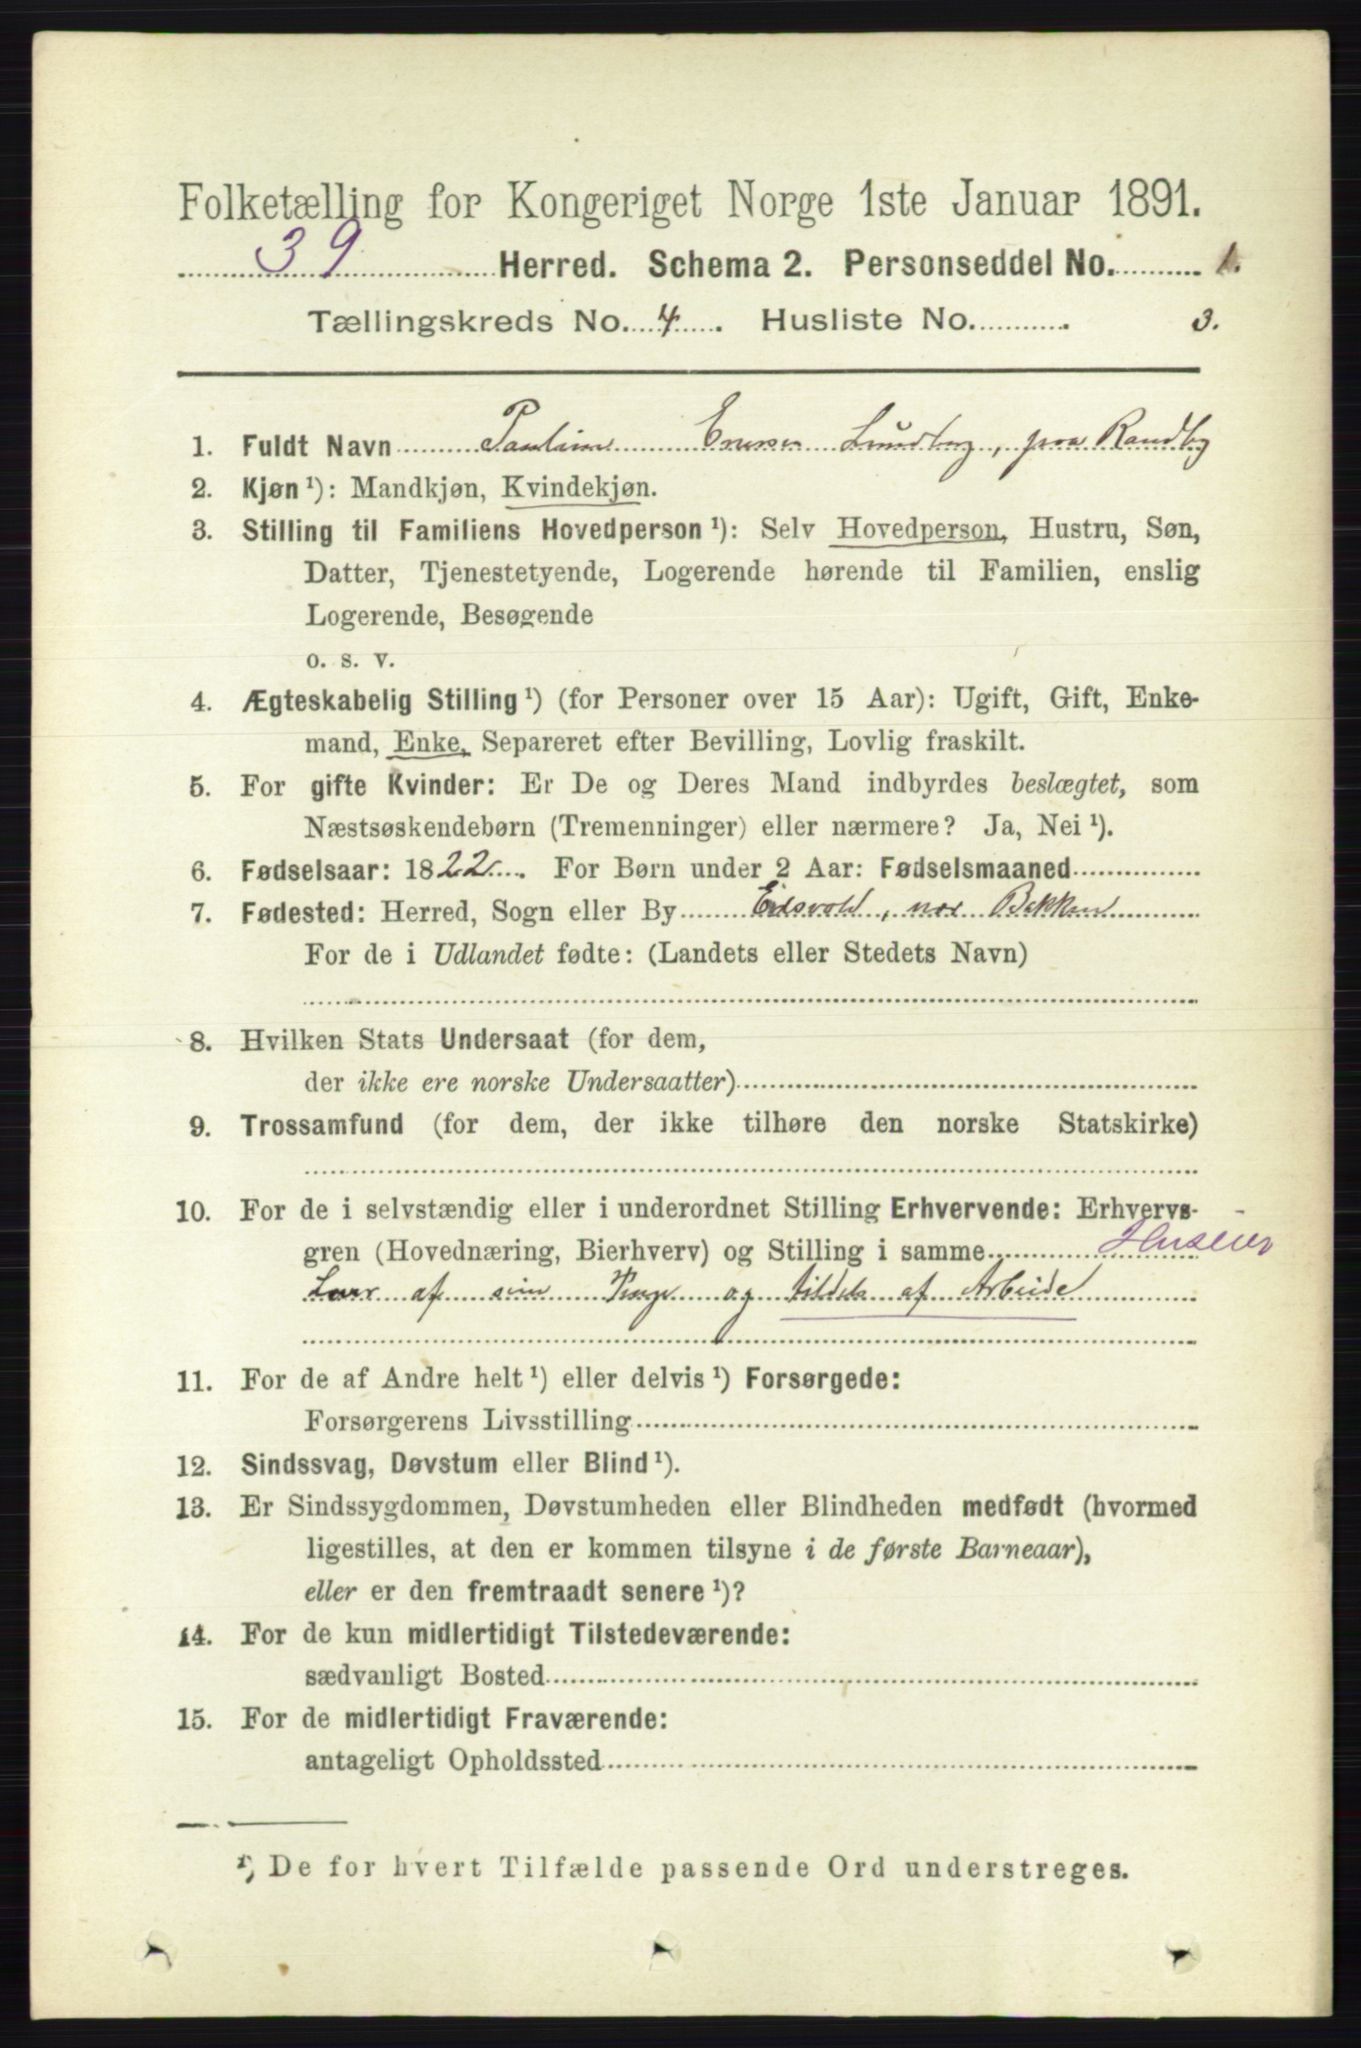 Folketælling for Kongeriget Norge 1ste Januar 1891.
39 Herred. Schema 2. Personseddel No. 1.
Tællingskreds No. 4. Husliste No. 3.
1. Fuldt Navn Pauline Lundberg, paa Randby
2. Kjøn ¹): Mandkjøn, Kvindekjøn.
3. Stilling til Familiens Hovedperson ¹): Selv Hovedperson, Hustru, Søn,
Datter, Tjenestetyende, Logerende hørende til Familien, enslig
Logerende, Besøgende
o. s. v.
4. Ægteskabelig Stilling ¹) (for Personer over 15 Aar): Ugift, Gift, Enke-
mand, Enke, Separeret efter Bevilling, Lovlig fraskilt.
5. For gifte Kvinder: Er De og Deres Mand indbyrdes beslægtet, som
Næstsøskendebørn (Tremenninger) eller nærmere? Ja, Nei ¹).
6. Fødselsaar: 1822. For Børn under 2 Aar: Fødselsmaaned
7. Fødested: Herred, Sogn eller By Eidsvold, Bekken
For de i Udlandet fødte: (Landets eller Stedets Navn)
8. Hvilken Stats Undersaat (for dem,
der ikke ere norske Undersaatter)
9. Trossamfund (for dem, der ikke tilhøre den norske Statskirke)
10. For de i selvstændig eller i underordnet Stilling Erhvervende: Erhvervs-
gren (Hovednæring, Bierhverv) og Stilling i samme Huseier
af sine Penge og tildels af Arbeide
11. For de af Andre helt ¹) eller delvis ¹) Forsørgede:
Forsørgerens Livsstilling
12. Sindssvag, Døvstum eller Blind ¹).
13. Er Sindssygdommen, Døvstumheden eller Blindheden medfødt (hvormed
ligestilles, at den er kommen tilsyne i de første Barneaar),
eller er den fremtraadt senere ¹)?
14. For de kun midlertidigt Tilstedeværende:
sædvanligt Bosted
15. For de midlertidigt Fraværende:
antageligt Opholdssted
¹) De for hvert Tilfælde passende Ord understreges.